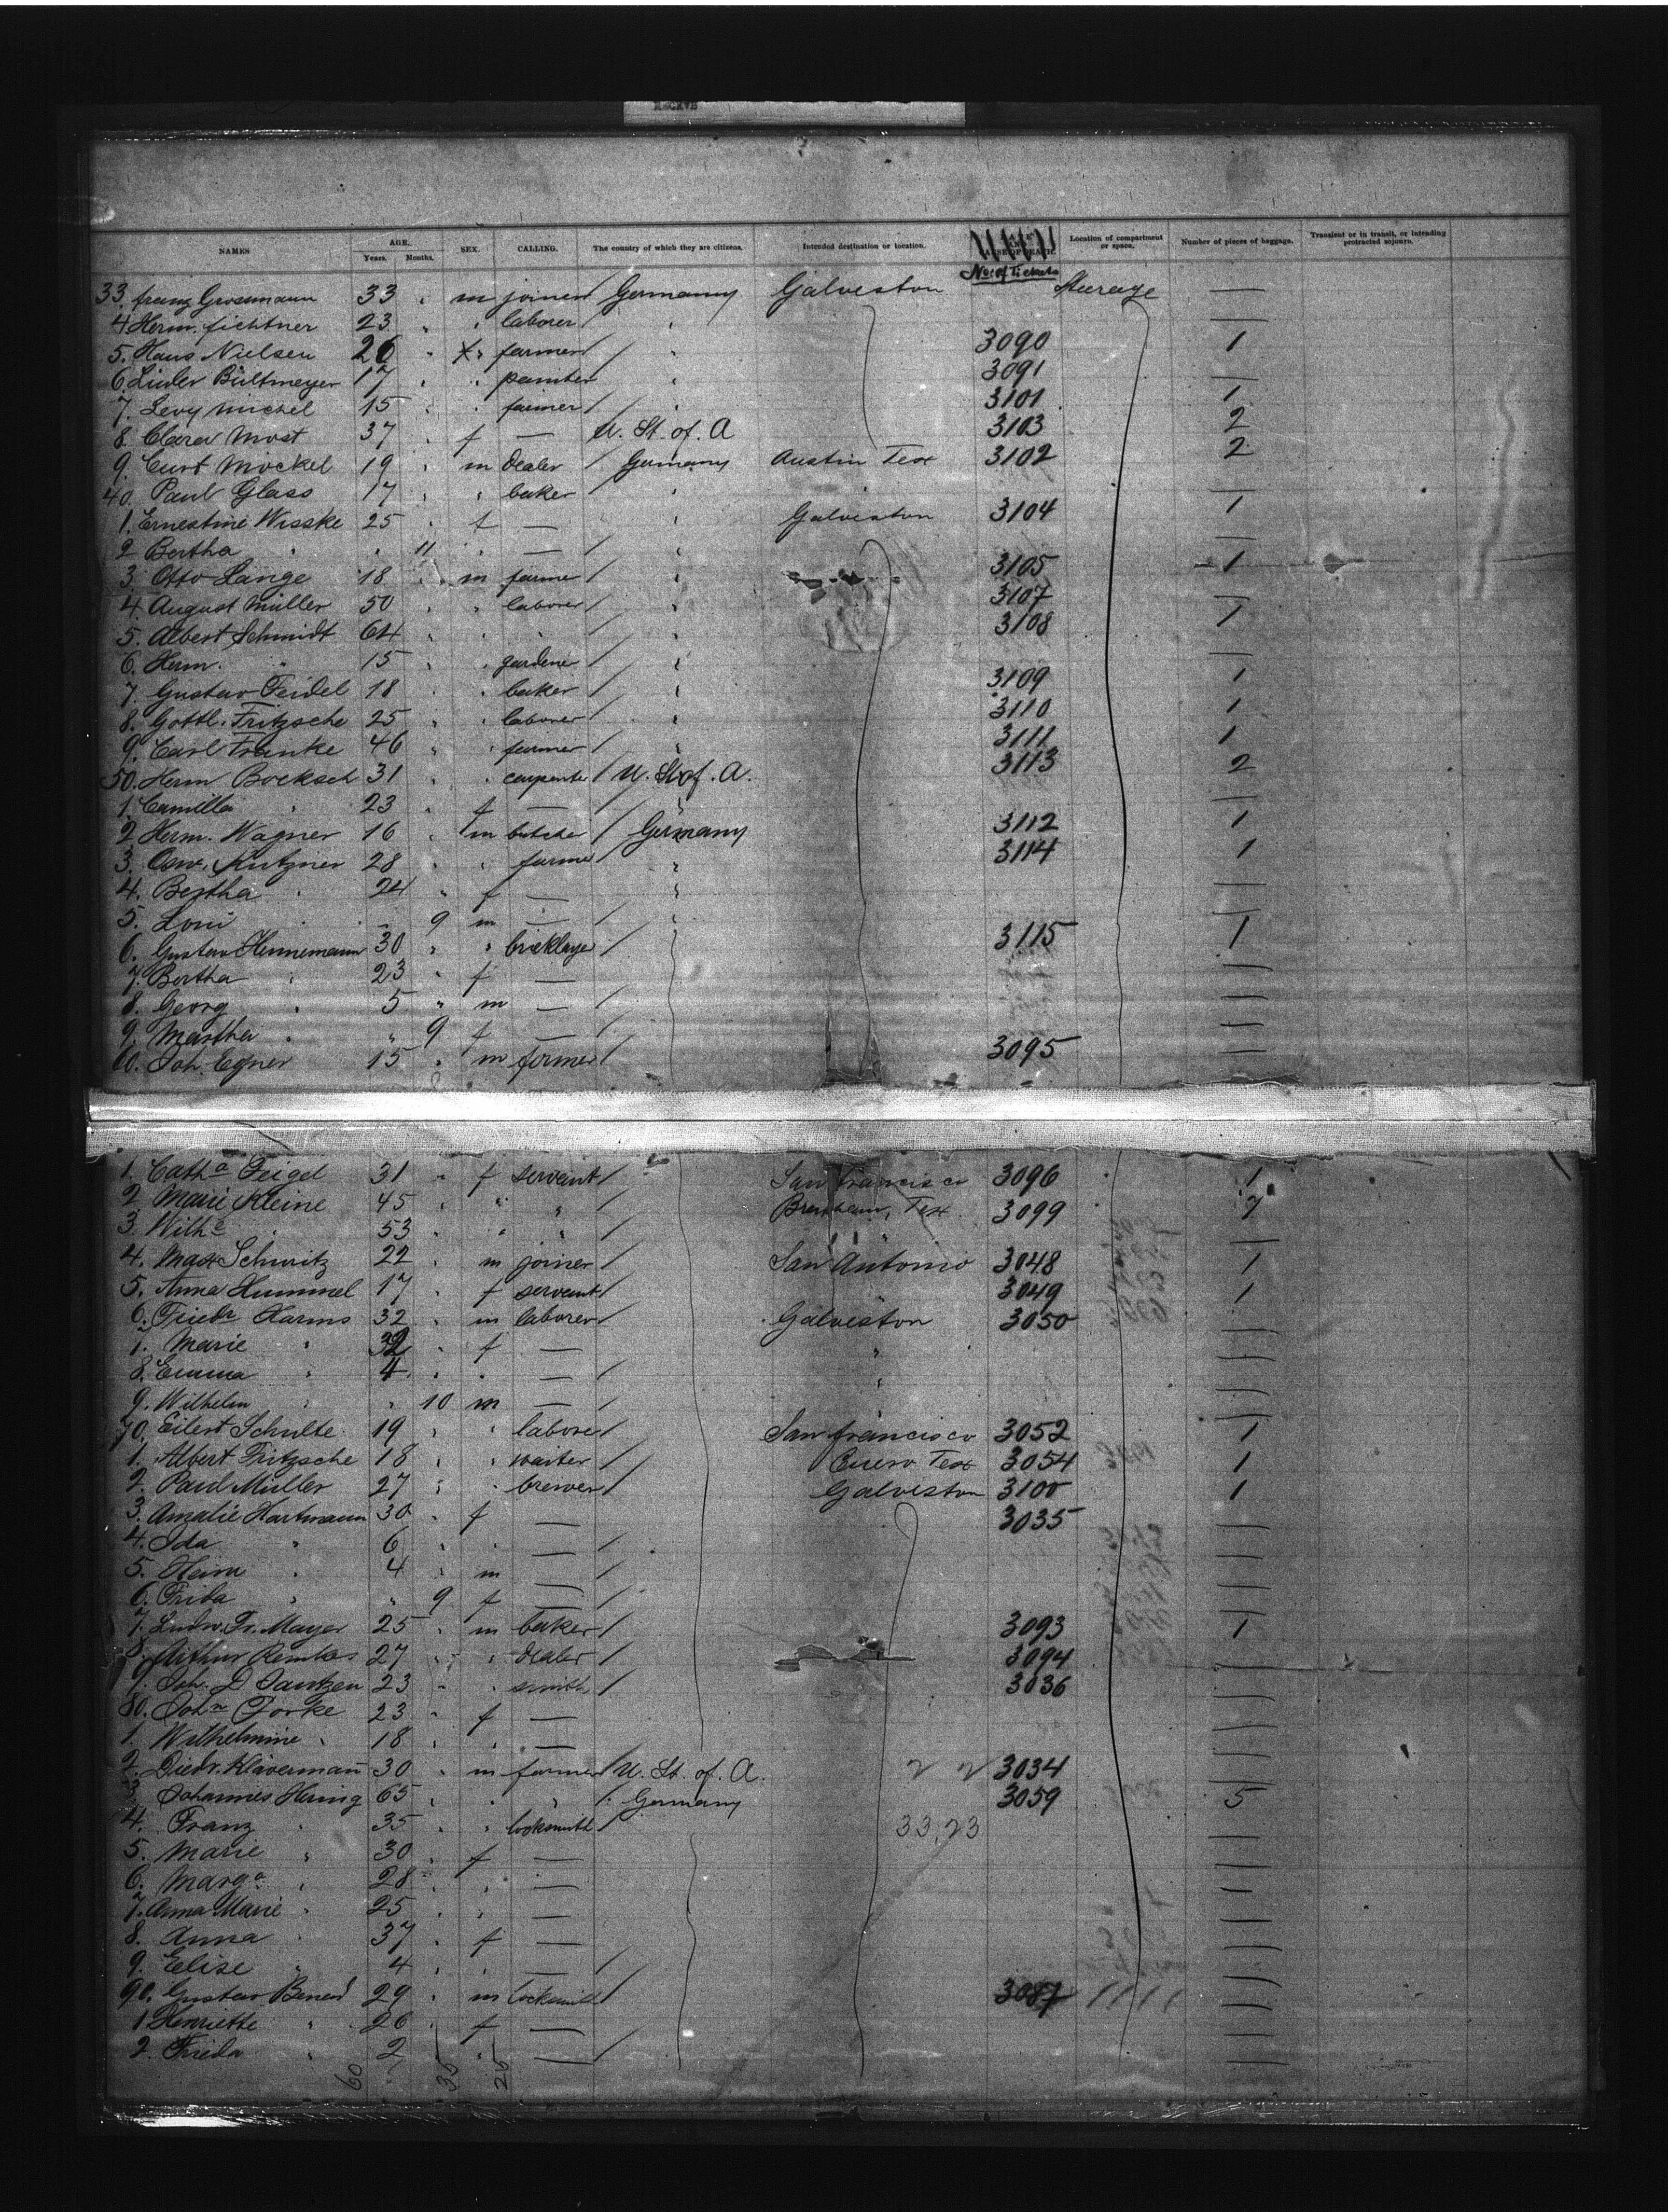 RECEVD
NAMES AGE. Years. Months. SEX. CALLING. The country of which they are citizens. Intended destination or location. No: of Tickets Location of compartment or space. Number of pieces of baggage. Transient or in transit, or intending protracted sojourn.
33. Franz Grossmann 33 " m joiner / Germany Galveston Steerage —
4 Herm. Fichtner 23 " " laborer / " —
5. Hans Nielsen 26 " " farmer / " 3090 1
6. Bültmeyer 17 " " painter " 3091 —
7. Levy Michel 15 " " farmer / " 3101 1
8. Clara Most 37 " f — U. St. of. A 3103 2
9. Curt Möckel 19 " m dealer / Germany Austin Tex 3102 2
40. Paul Glass 17 " " baker / " —
1. Ernestine Wisske 25 " f — " Galveston 3104 1
2 Bertha " " 11 " — / " —
3 Otto Lange 18 " m farmer / " 3105 1
4. August Müller 50 " " laborer / " 3107 —
5. Albert Schmidt 64 " " " / " 3108 1
6. Herm. " 15 " " gardener / "
7. Gustav Feidel 18 " " baker / " 3109 1
8. Gottl. Fritzsche 25 " " laborer / " 3110 1
9. Carl Franke 46 " " farmer / " 3111 1
50. Herm Bocksch 31 " " carpenter / U. St. of. A. 3113 2
1. Camilla " 23 " f — " —
2 Herm. Wagner 16 " m butcher / Germany 3112 1
3. Osw. Kutzner 28 " " farmer " 3114 1
4. Bertha " 24 " f — " —
5. " 9 m — / " —
6. Gustav Hennemann 30 " " bricklayer / 3115 1
7. Bertha " 23 " f — —
8. Georg " 5 " m — / —
9. Martha " " 9 f — / —
60. Joh. Egner 15 " m farmer / 3095 —
1. Cath.a Feigel 31 " f servant / San Francisco 3096 1
2 Marie Kleine 45 " " " / Brenham, Tex 3099 7
3. Wilh.e " 53 " " " / —
4. Max Schmitz 22 " m joiner / San Antonio 3048 1
5. Anna Hummel 17 " f servant / 3049 1
6. Friedr. Harms 32 " m laborer / Galveston 3050 —
7. Marie " 32 " f — " —
8. Emma " 4 " " — / " —
9. Wilhelm " " 10 m — / —
70. Eilert Schulte 19 " " laborer / San Francisco 3052 1
1. Albert Fritzsche 18 " " waiter / Cuero Tex 3054 1
2. Paul Müller 27 " " brewer / Galveston 3100 1
3. Amalie Hartmann 30 " f — 3035 —
4. Ida " 6 " " — / —
5. " 4 " m — / —
6. Frida " " 9 f — / —
7. Ludw. Fr. Mayer 25 " m baker / 3093 1
8. Arthur 27 " " dealer / 3094 —
9. Joh. D Jantzen 23 " " smith / 3036 —
80. Joh.n 23 " f — —
1. Wilhelmine " 18 " " — —
2. Diedr. Klävermann 30 " m farmer / U. St. of. A. 3034 —
3 Johannes Hering 65 " " " / Germany 3059 5
4. Franz " 35 " " locksmith / 33,23 —
5. Marie " 30 " f — —
6. Marg.a " 28 " " — —
7. Anna Marie " 25 " " — —
8. Anna " 37 " f — —
9. Elise " 4 " " — / —
90. Gustav 29 " m locksmith / 3087 —
1 Henriette " 26 " f — —
2. Frieda " 2 " " — / —
60 35 25